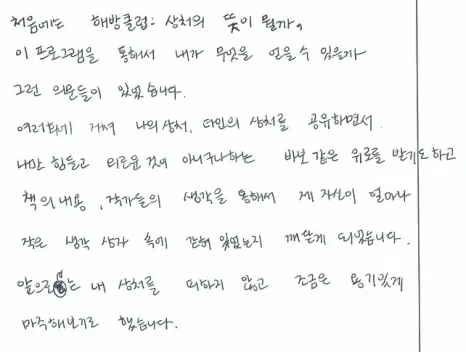 처음에는 해방클럽: 상처의 뜻이 뭘까,
이 프로그램을 통해서 내가 무엇을 얻을 수 있을까
그런 의문들이 있었습니다.
여러회기 거쳐 나의 상처, 타인의 상처를 공유하면서
나만 힘들고 외로운 것이 아니구나하는 바보 같은 위로를 받기도 하고
책의 내용, 작가들의 생각을 통해서 제 자신이 얼마나
작은 생각 상자 속에 갇혀 있었는지 깨닫게 되었습니다.
앞으로는 내 상처를 피하지 않고 조금은 용기있게
마주해보기로 했습니다.